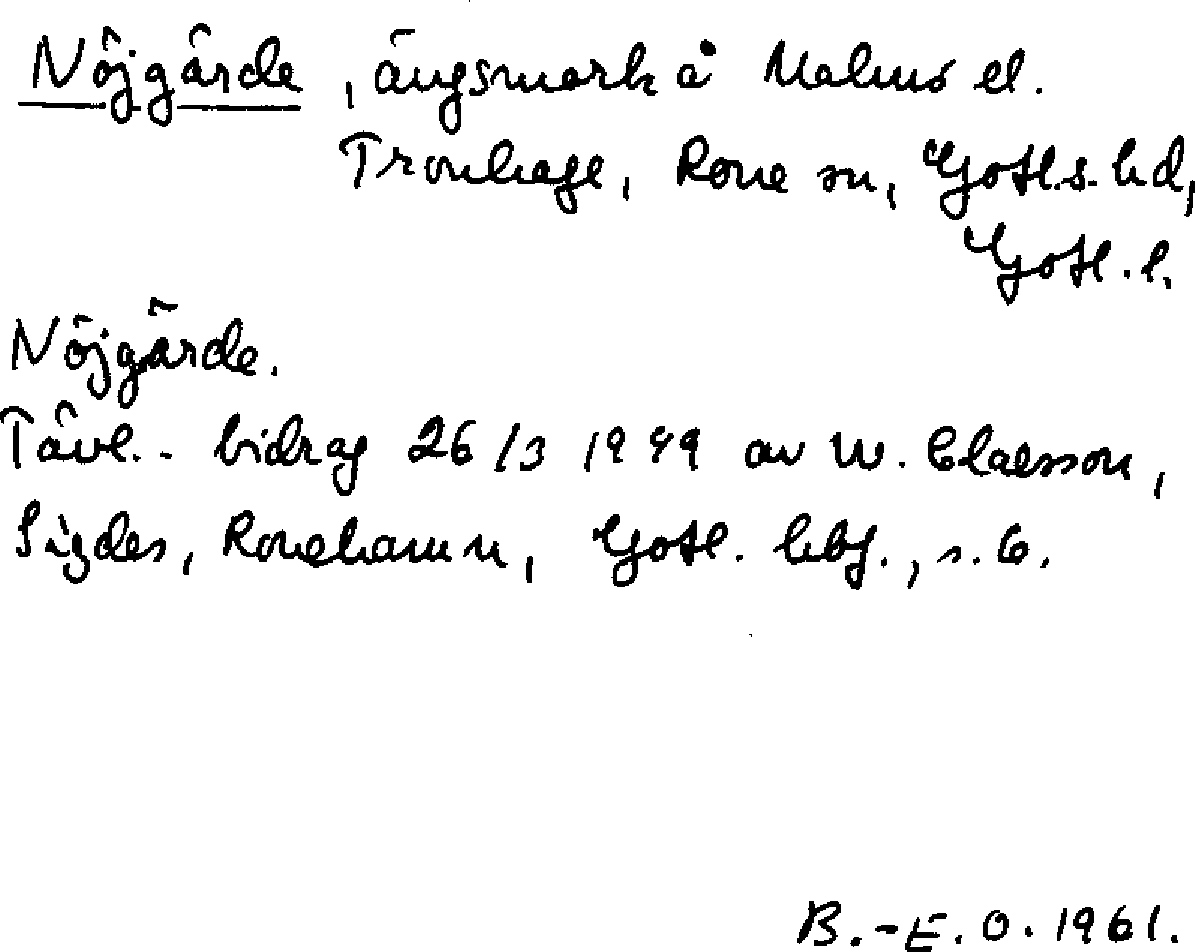 Nöjgärde, ängsmark å Malms el.
Tronhage, Rone sn, Gotl.s. hd,
Gotl. l.
Nöjgärde.
Tävl.- bidrag 26/3 1949 av W. Claesson,
Sigdes, Ronehamn, Gotl. , s. 6.
B.-E. O. 1961.